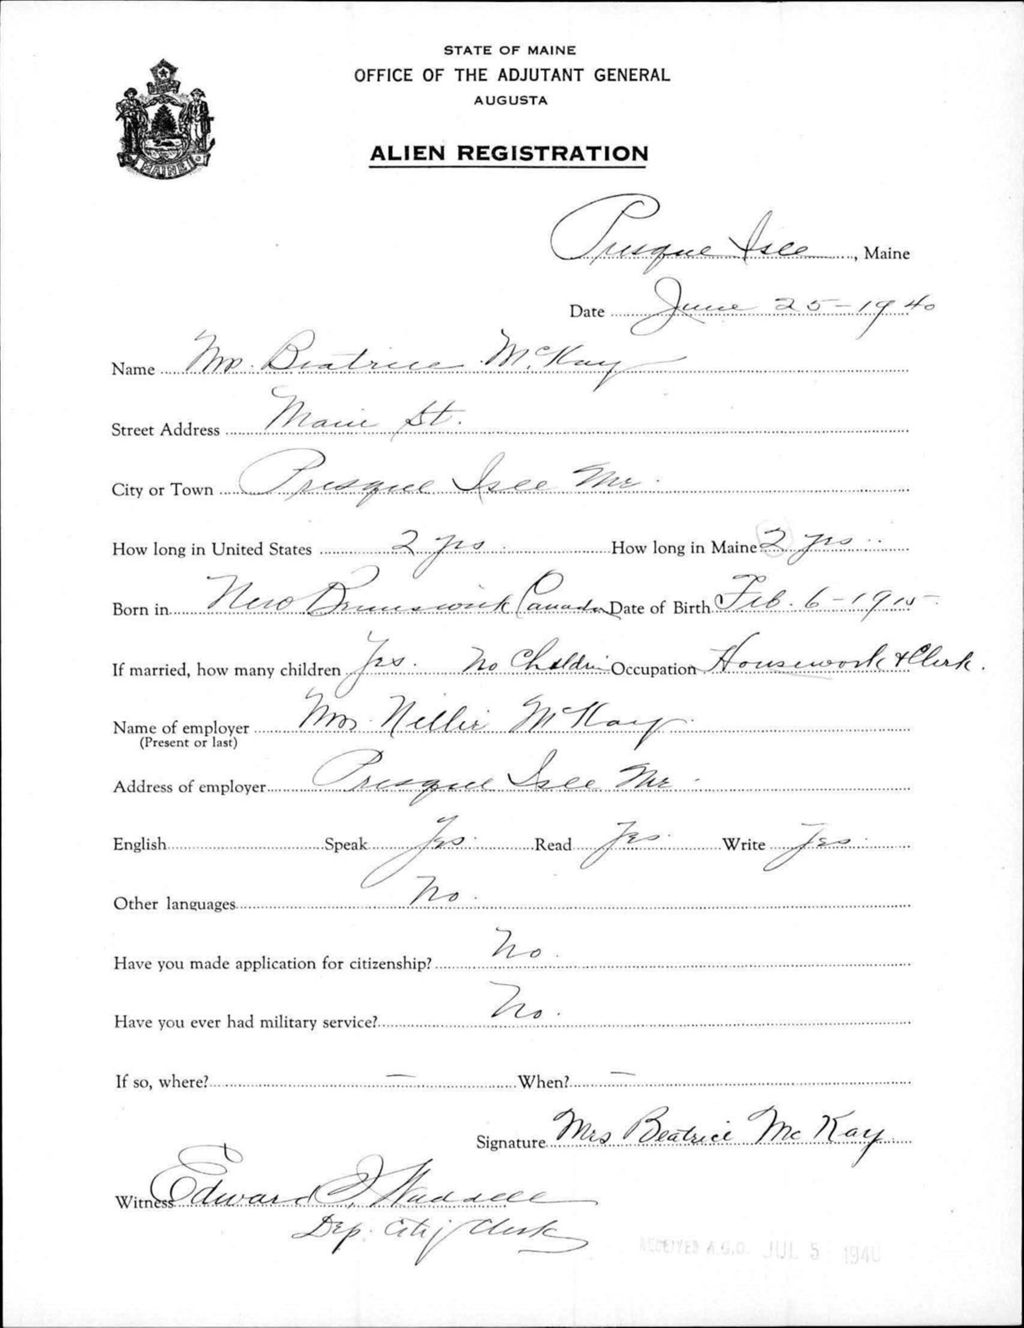 STATE OF MAINE
OFFICE OF THE ADJUTANT GENERAL
AUGUSTA
ALIEN REGISTRATION
MAINE
Presque Isle, Maine
Date June 25-1940
Name Mrs. Beatrice McKay
Street Address Main St.
City or Town Presque Isle Me.
How long in United States 2 yrs. How long in Maine 2 yrs.
Born in New Brunswick Canada Date of Birth Feb. 6-1915
If married, how many children Yes. No Children Occupation Housework & Clerk.
Name of employer Mrs. Nellie McKay
(Present or last)
Address of employer Presque Isle Me.
English Speak Yes. Read Yes. Write Yes.
Other languages No.
Have you made application for citizenship? No.
Have you ever had military service? No.
If so, where? — When? —
Signature Mrs Beatrice McKay
Witness Edward J. Waddell
Dep. City Clerk
RECEIVED A.G.O. JUL 5 1940